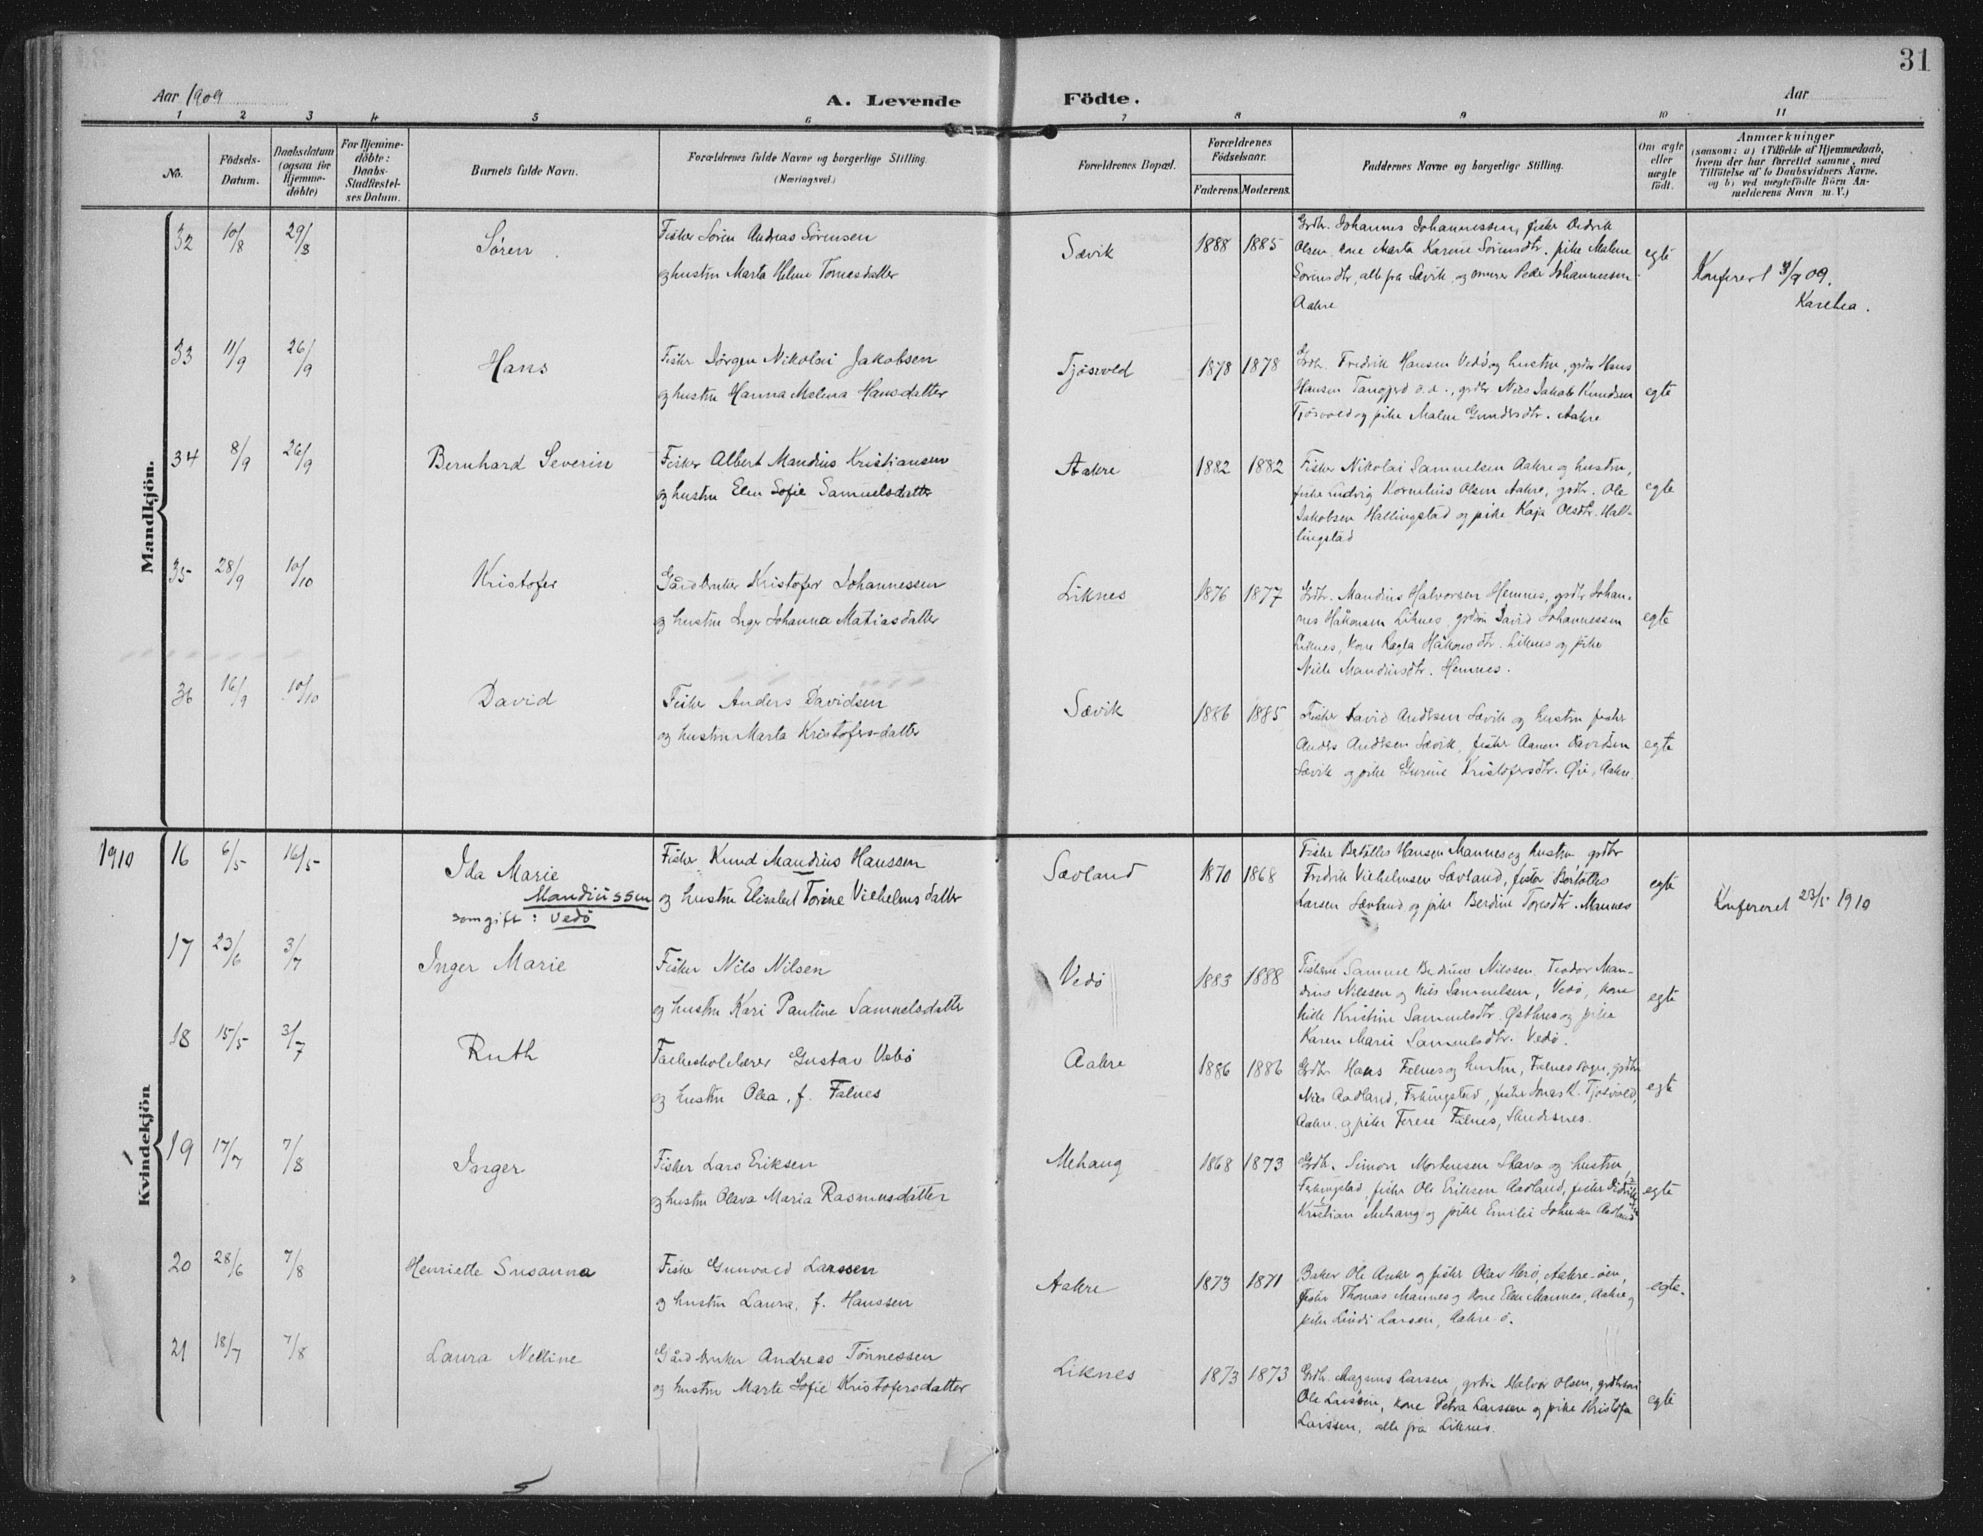 31
Aar 1909
A. Levende Födte.
Aar
1 2 3 4 5 6 7 8 9 10 11
No.
Födsels-Datum.
Daabsdatum (ogsaa for Hjemmedöbte)
For Hjemmedöbte: Daabs-Stadfæstelses Datum.
Barnets fulde Navn.
Forældrenes fulde Navne og borgerlige Stilling.
(Næringsvei.)
Forældrenes Bopæl.
Forældrenes Födselsaar.
Faderens. Moderens.
Faddernes Navne og borgerlige Stilling.
Om ægte eller uægte födt.
Anmærkninger
(saasom: a) i Tilfælde af Hjemmedaab,
hvem der har forrettet samme, med
Tilföielse af to Daabsvidners Navne.
og b) ved uægtefödte Börn Anmelderens Navn m. V.)
Mandkjön.
32 10/8 29/8 Sören Fisker Sören Andreas Sörensen
og hustru Marta Helene Tomasdatter
Sævik 1888 1885
Grdbr. Johannes Johannessen, fisker Didrik
Olsen, kone Marta Karine Sörensdtr. pike Malene
Sorensdtr, alle fra Sævik, og Peder Johannessen
Aakre
egte
Konferert 3/9 09.
33 11/9 26/9 Hans Fisker Jörgen Nikolai Jakobsen
og hustru Hanna Malena Hansdatter
Tjösvold 1878 1878
Grdbr. Fredrik Hansen Vedö og hustru, grdbr Hans
Hansen Tangjerd, grdbr Nils Jakob Knudsen
Tjösvold og pike Malene Gundersdtr. Aakre
egte
34 8/9 26/9 Bernhard Severin Fisker Albert Mandius Kristiansen
og hustru Elen Sofie Samuelsdatter
Aakre 1882 1882
Fisker Nikolai Samuelsen Aakre og hustru,
fisker Ludvig Kornelius Olsen Aakre, grdbr. Ole
Jakobsen Hallingstad og pike Kaja Olsdtr. Hallingstad
egte
35 28/9 10/10 Kristofer Gårdbruker Kristofer Johannessen
og hustru Inger Johanna Matiasdatter
Liknes 1876 1877
Grdbr. Mandius Halvorsen Hemnes, grdbr Johannes
Håkonsen Liknes, David Johannessen
Liknes, kone Håkonsdtr. Liknes og pike
Mandiusdtr. Hemnes.
egte
36 16/9 10/10 David Fisker Anders Davidsen
og hustru Marta Kristofersdatter
Sævik 1886 1885
Fisker David Andersen Sævik og hustru fisker
Anders Andersen Sævik, fisker Aanen Davidsen
Sævik og pike Gurine Kristofersdtr. Aakre.
egte
1910
Kvindekjön
16 6/5 16/5 Ida Marie
Mandiussen
som gift: Vedö
Fisker Knud Mandius Hanssen
og hustru Elisabet Torine Vielhelmsdatter
Sævland 1870 1868
Fisker Bertolles Hansen Mannes og hustru, grdbr
Fredrik Vielhelmsen Sævland, fisker Bertolles
Larsen Sævland og pike Berdine Toresdtr. Mannes
egte
Konfereret 23/5 1910
17 23/6 3/7 Inger Marie Fisker Nils Nilsen
og hustru Kari Pauline Samuelsdatter
Vedö 1883 1888
Fiskerne Samuel Nilssen, Teodor Mandius
Nilssen og Nils Samuelsen, Vedö, kone
Kristine Samuelsdtr. og pike
Karen Marie Samuelsdtr. Vedö.
egte
18 15/5 3/7 Ruth Folkeskolelærer Gustav Vebö
og hustru Olea, f. Falnes
Aakre 1886 1886
Grdbr. Hans Falnes og hustru, Falnes sogn, grdbr
Nils Aadland, Ferkingstad, fisker Jonas K. Tjösvold,
Aakre og pike Terese Falnes, Skudesnes.
egte
19 17/7 7/8 Inger Fisker Lars Eriksen
og hustru Olava Maria Rasmusdatter
Mehaug 1868 1873
Grdbr. Simon Mortensen Stava og hustru,
Ferkingstad, fisker Ole Eriksen Aadland, fisker
Kristian Mehaug og pike Emilie Johnsen Aadland
egte
20 28/6 7/8 Henriette Susanna Fisker Gunvald Larssen
og hustru Laura, f. Hanssen
Aakre 1873 1871
Baker Ole Anker og fisker Olav Herö, Aakre-öen,
fisker Thomas Mannes og kone Elen Mannes, Aakre og
pike Lindi Larsen, Aakre-ö.
egte.
21 18/7 7/8 Laura Nelline Gårdbruker Andreas Tönnessen
og hustru Marte Sofie Kristofersdatter
Liknes 1873 1873
Grdbr. Magnus Larsen, Halvor Olsen,
Ole Larssen, kone Petra Larssen og pike Kristofa
Larssen, alle fra Liknes.
egte